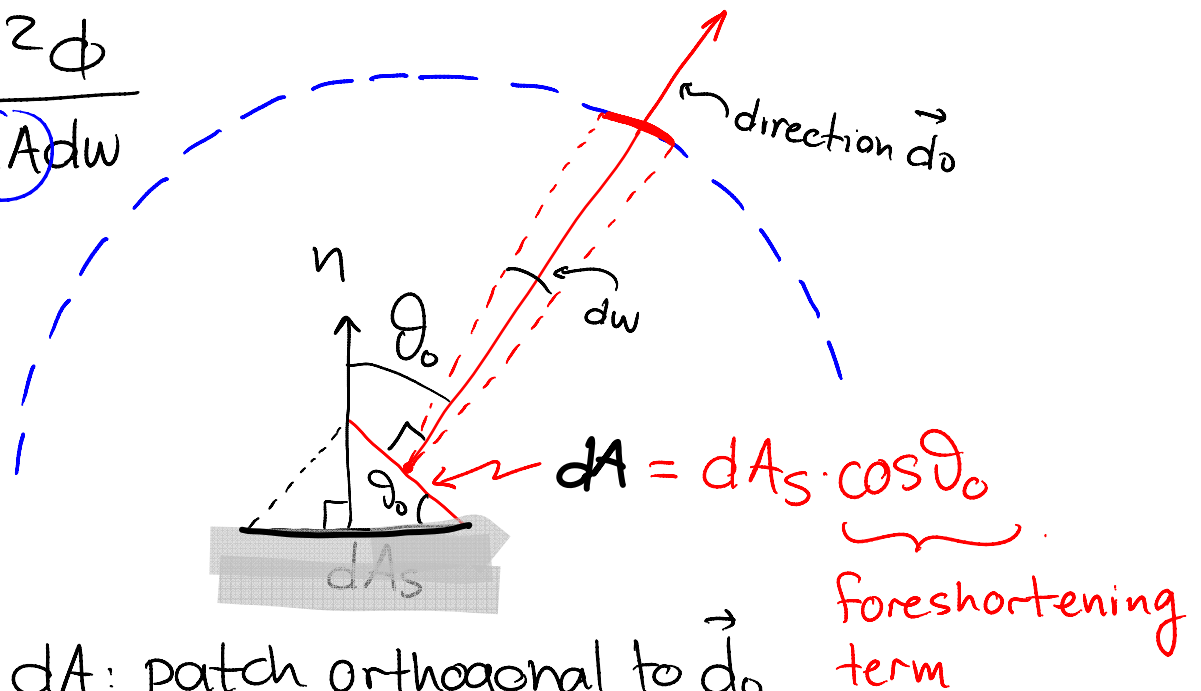 ²ϕ
Adw
direction d⃗o
n
ϑo
dw
ϑo
dA = dAs · cosϑo
dAs
foreshortening
term
dA: patch orthogonal to d⃗o